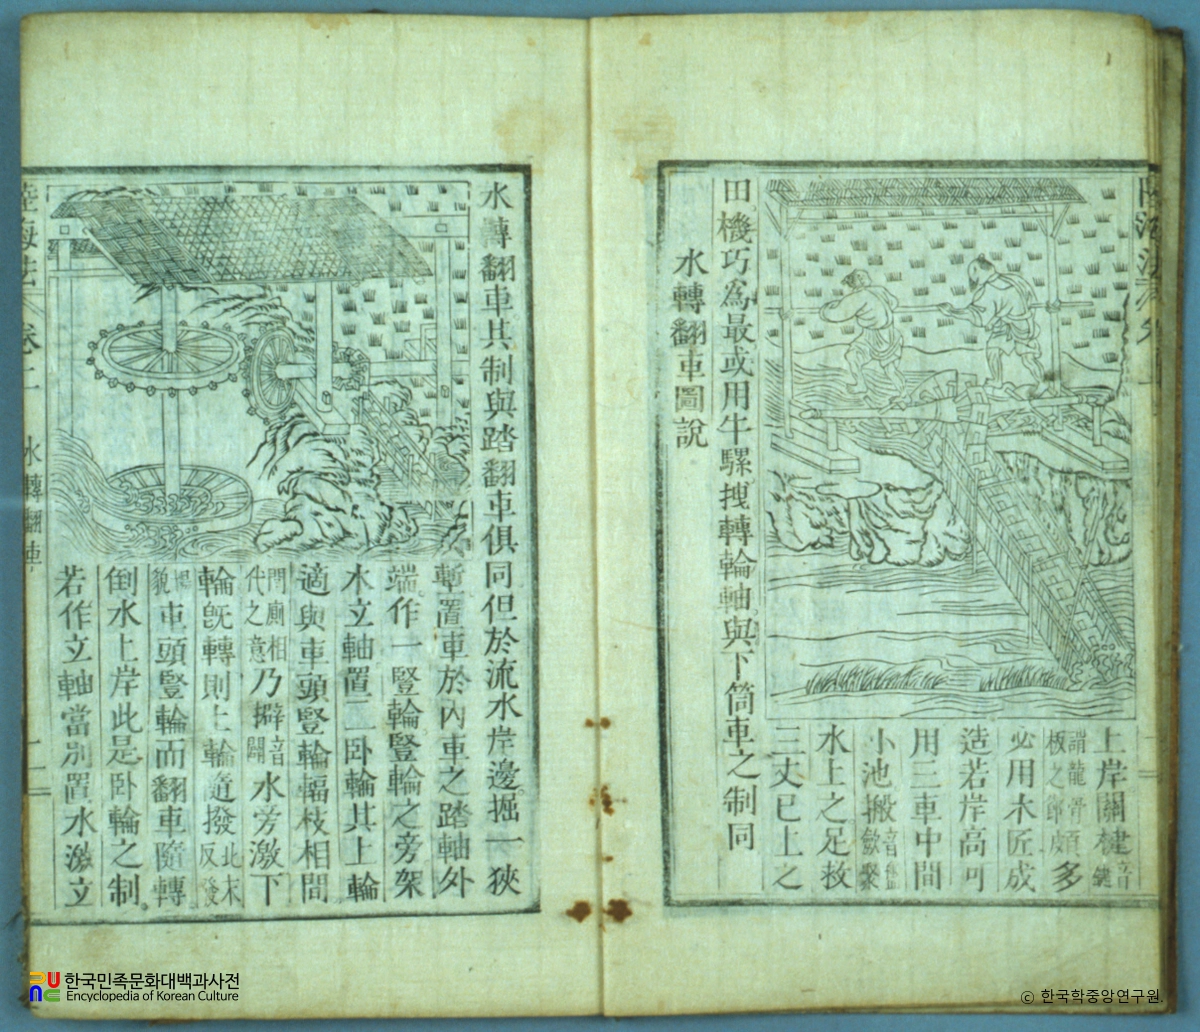 上岸關楗音鍵
謂龍骨板之節頗多
必用木匠成
造若岸高可
用三車中間
小池搬音盤歛聚
水上之足救
三丈已上之
田機巧為最或用牛騾拽轉輪軸與下筒車之制同
水轉翻車圖說
水轉翻車其制與踏翻車俱同但於流水岸邊掘一狹
塹置車於內車之踏軸外
端作一豎輪豎輪之旁架
木立軸置二卧輪其上輪
適與車頭豎輪輻枝相間
間廁相代之意乃擗音闢水旁激下
輪旣轉則上輪隨撥北末反發
貌車頭豎輪而翻車隨轉
倒水上岸此是卧輪之制
若作立軸當別置水激立
陸海法 卷二 水轉翻車 二
한국민족문화대백과사전
Encyclopedia of Korean Culture
© 한국학중앙연구원.